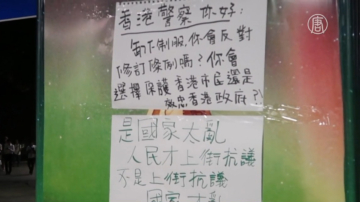 香港警察 你好：
卸下制服，你會反對
修訂條例嗎？你會
選擇保護香港市民還是
效忠香港政府？
是國家太亂
人民才上街抗議
不是上街抗議
國家才亂
唐